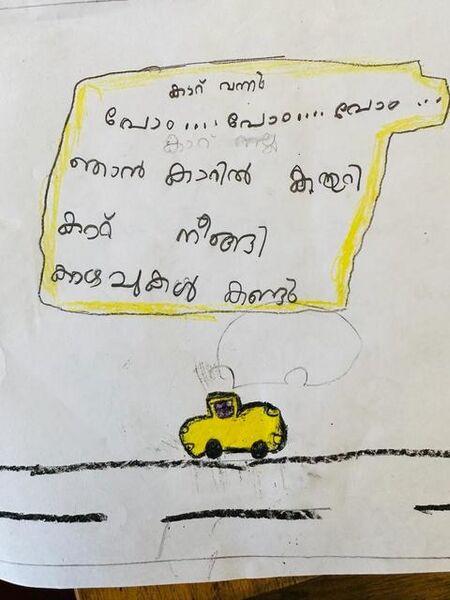 കാറ് വന്നു
പോം.... പോം.... പോം...
കാറ്
ഞാൻ കാറിൽ കയറി
കാറ് നീങ്ങി
കാഴ്ചകൾ കണ്ടു